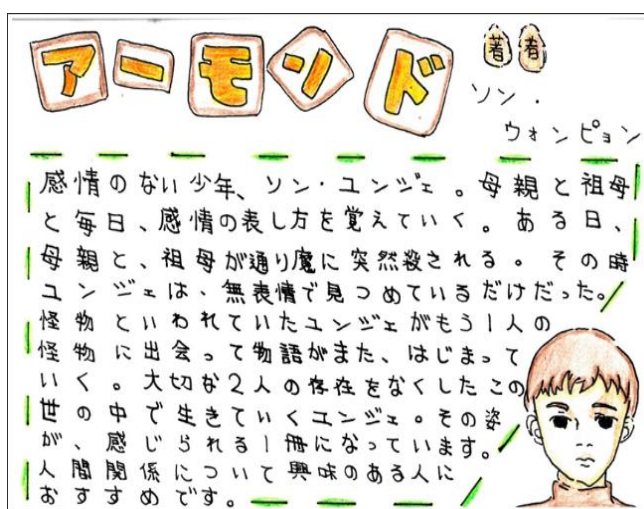 アーモンド
著者
ソン・
ウォンピョン
感情のない少年、ソン・ユンジェ。母親と祖母
と毎日、感情の表し方を覚えていく。ある日、
母親と、祖母が通り魔に突然殺される。その時
ユンジェは、無表情で見つめているだけだった。
怪物といわれていたユンジェがもう1人の
怪物に出会って物語がまた、はじまって
いく。大切な2人の存在をなくしたこの
世の中で生きていくユンジェ。その姿
が、感じられる1冊になっています。
人間関係について興味のある人に
おすすめです。